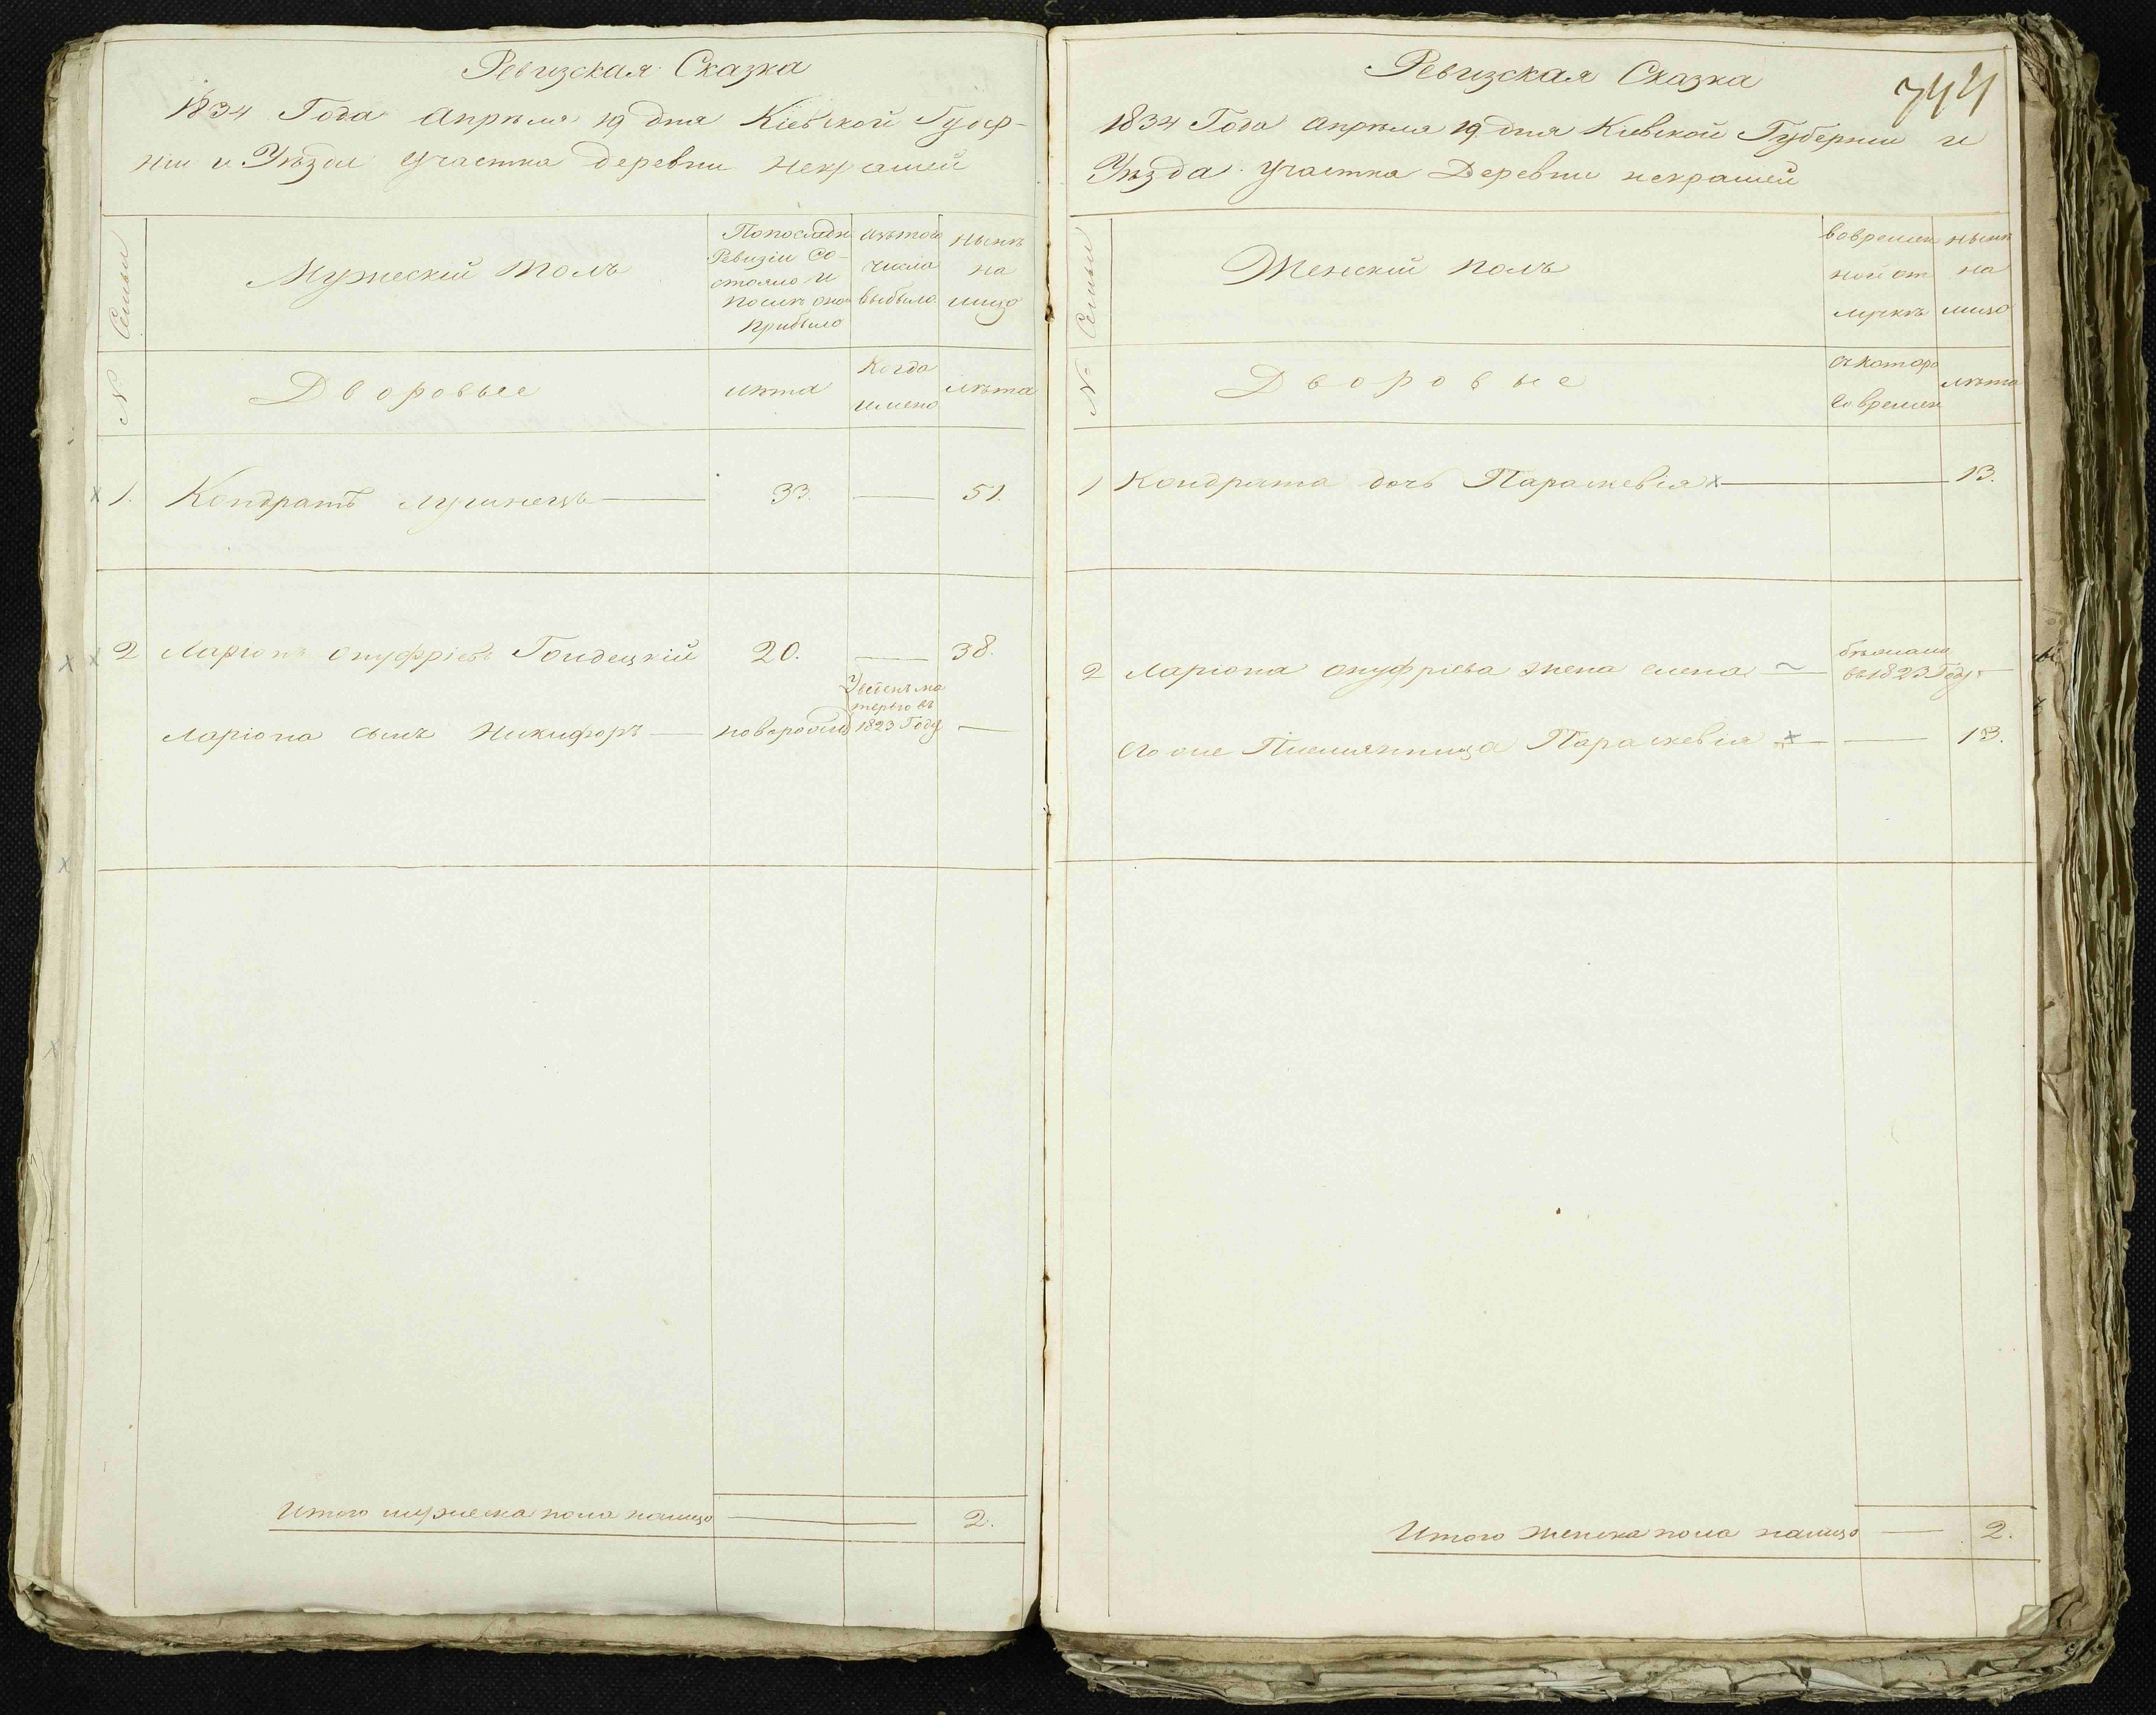 Ревизская Сказка
1834 Года Апрѣля 19 дня Кіевской Губер-
ніи и Уѣзда участка деревни Некрашей
№ Семьи
Мужескій Полъ
По последн
Ревизіи Со-
стояло и
послѣ оно
прибыло
Изътого
числа
выбыло
Нынѣ
на
лицо
Дворовые
лѣта
Когда
имено
лѣта
1. Кондратъ Лугинецъ 33. 51.
2 Ларіонъ Онуфріевъ Гондецкій 20. 38.
Уведенъ ма
терью въ
Ларіона сынъ Никифоръ новорожд 1823 Году
Итого мужеска пола налицо 2.
744
Ревизская Сказка
1834 Года Апрѣля 19 дня Кіевской Губерніи и
Уѣзда участка Деревни Некрашей
№ Семьи
Женскій Полъ
вовремен
ной от
лучкѣ
нынѣ
на
лицо
Дворовые
съ которо
го времен
лѣта
1 Кондрата дочь Параскевія 13.
бѣжала
2 Ларіона Онуфріева жена Елена въ 1823 Году
Его же Племянница Параскевія 13.
Итого женска пола налицо 2.